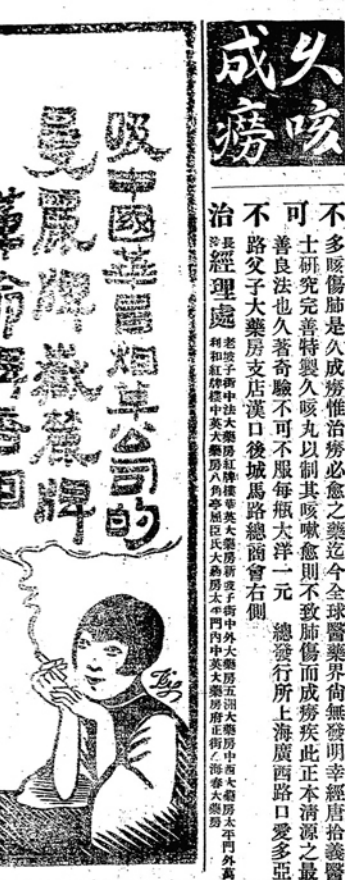 久咳
成癆
不可不治
多咳傷肺是久成癆惟治癆必愈之藥迄今全球醫藥界尚無發明幸經唐拾義醫
士研究完善特製久咳丸以制其咳嗽愈則不致肺傷而成癆疾此正本清源之最
善良法也久著奇驗不可不服每瓶大洋一元 總發行所上海廣西路口愛多亞
路父子大藥房支店漢口後城馬路總商會右側
長沙經理處
老坡子街中法大藥房紅牌樓華英大藥房新坡子街中外大藥房五洲大藥房中西大藥房太平門外萬
利和紅牌樓中英大藥房八角亭屈臣氏大藥房太平門內中英大藥房府正街上海春大藥房
吸中國華昌烟草公司的
曼麗牌嶽麓牌
革命牌香烟